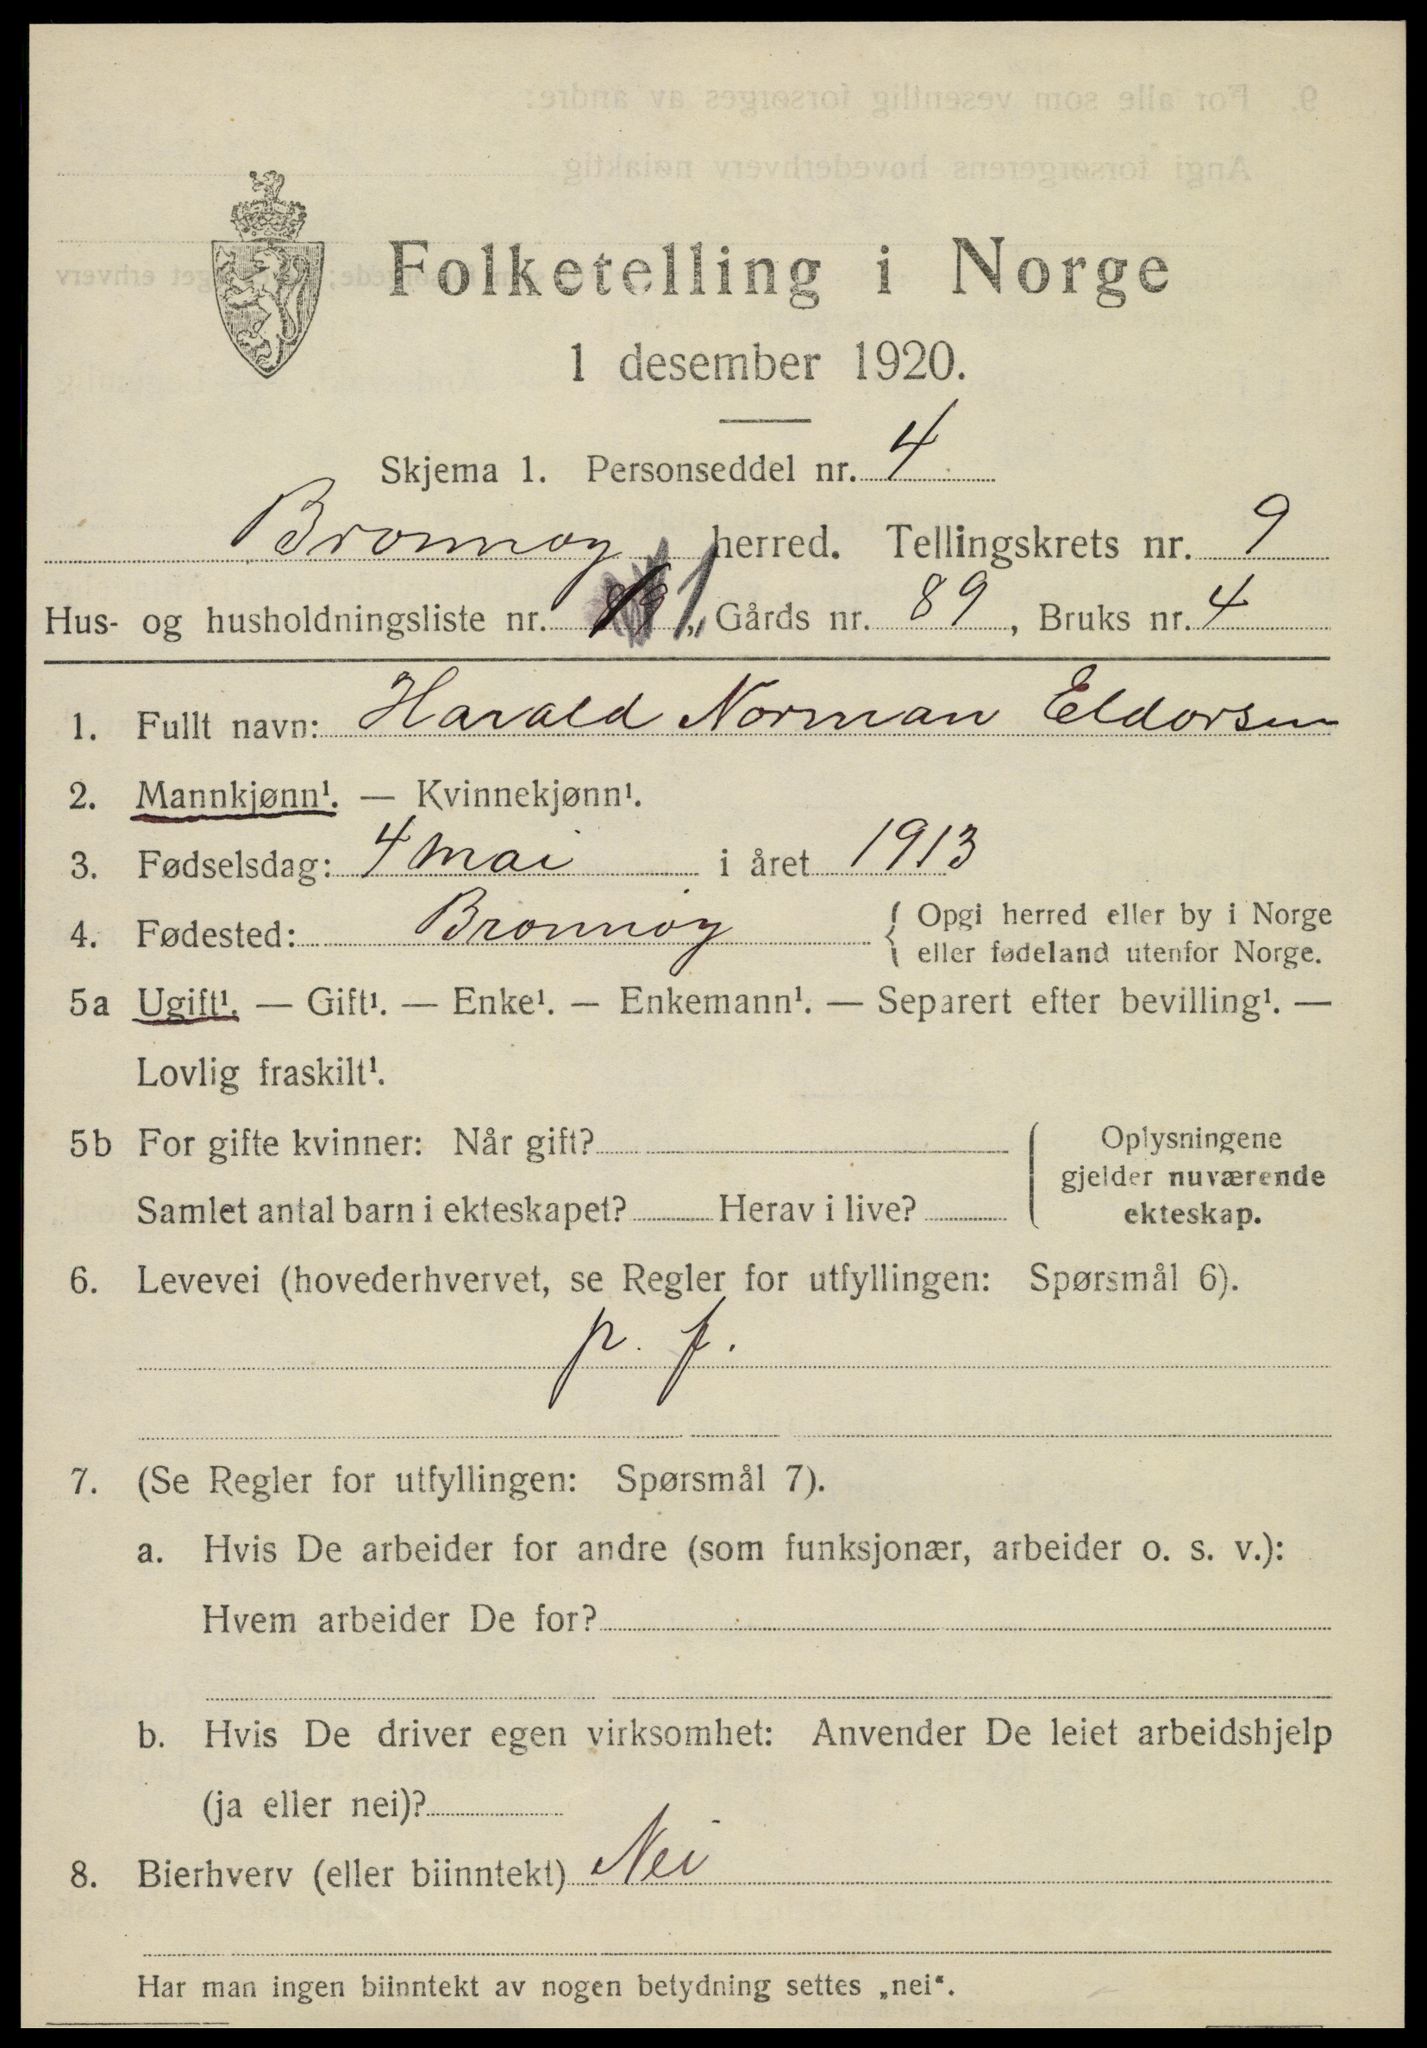 Folketelling i Norge
1 desember 1920.
Skjema 1. Personseddel nr. 4
Brønnøy herred. Tellingskrets nr. 9
Hus- og husholdningsliste nr. 1, Gårds nr. 89, Bruks nr. 4
1. Fullt navn: Harald Norman Eldorsen
2. Mannkjønn¹. — Kvinnekjønn¹.
3. Fødselsdag: 4 mai i året 1913
4. Fødested: Brønnøy { Opgi herred eller by i Norge
eller fødeland utenfor Norge.
5a Ugift¹. — Gift¹. — Enke¹. — Enkemann¹. — Separert efter bevilling¹. —
Lovlig fraskilt¹.
5b For gifte kvinner: Når gift?
Samlet antal barn i ekteskapet? Herav i live?
Oplysningene
gjelder nuværende
ekteskap.
6. Levevei (hovederhvervet, se Regler for utfyllingen: Spørsmål 6).
p. f.
7. (Se Regler for utfyllingen: Spørsmål 7).
a. Hvis De arbeider for andre (som funksjonær, arbeider o. s. v.):
Hvem arbeider De for?
b. Hvis De driver egen virksomhet: Anvender De leiet arbeidshjelp
(ja eller nei)?
8. Bierhverv (eller biinntekt) Nei
Har man ingen biinntekt av nogen betydning settes „nei“.